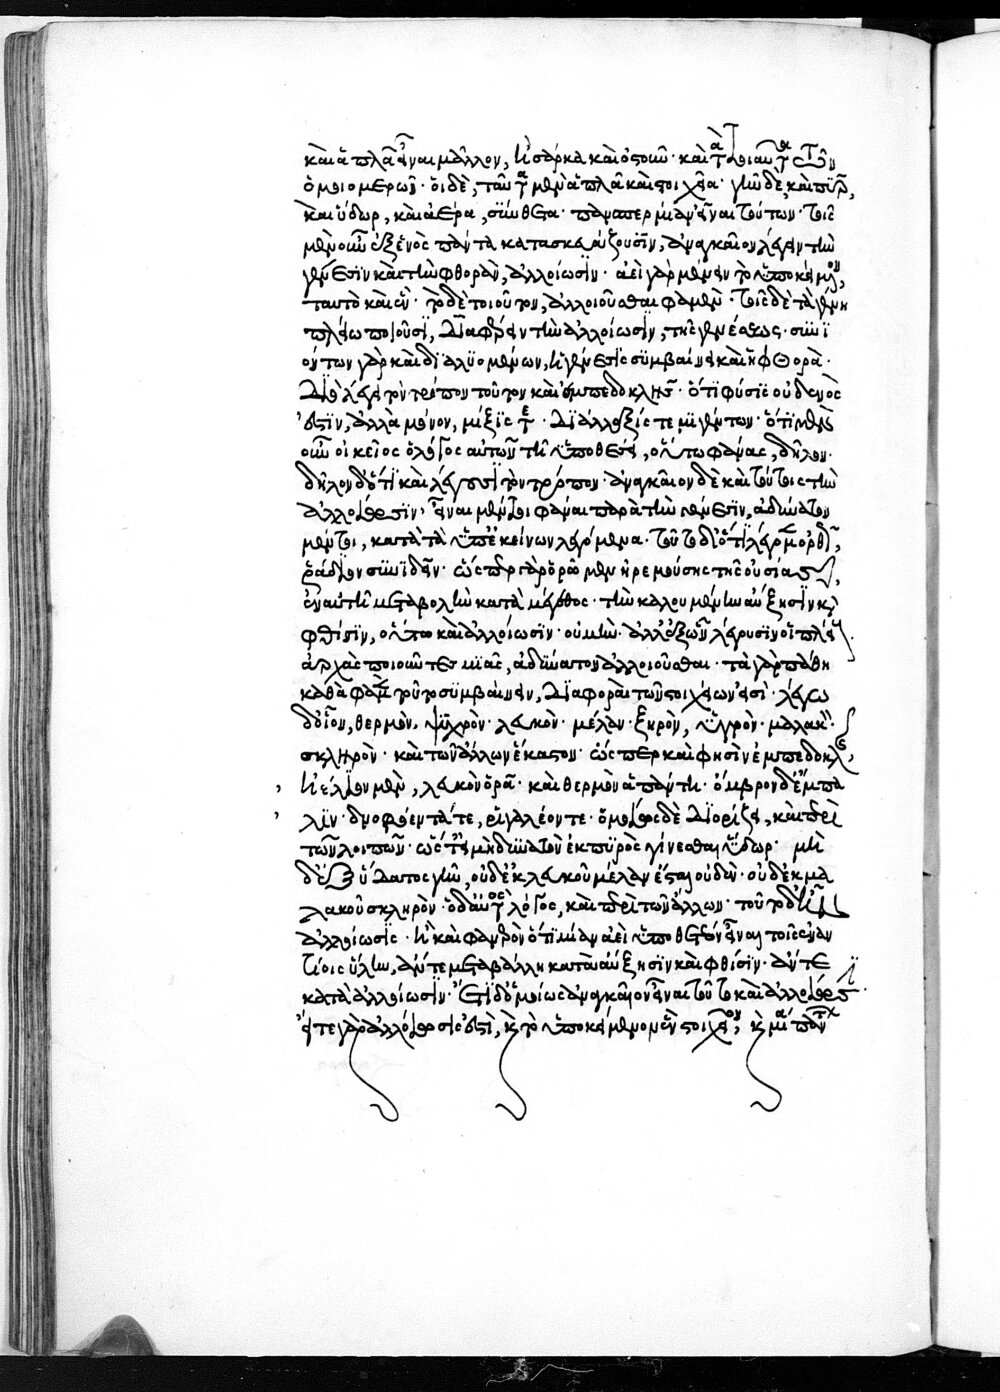 καὶ ἁπλᾶ εἶναι μᾶλλον, ἢ σάρκα καὶ ὀστοῦν· καὶ τὰ τοιαῦτα τῶν
ὁμοιομερῶν· οἱ δὲ, ταῦτα μὲν ἁπλᾶ καὶ στοιχεῖα· γῆν δὲ, καὶ πῦρ,
καὶ ὕδωρ, καὶ ἀέρα, σύνθετα· πανσπερμίαν εἶναι τούτων· τοῖς
μὲν οὖν ἐξ ἑνὸς πάντα κατασκευάζουσιν, ἀναγκαῖον λέγειν τὴν
γένεσιν καὶ τὴν φθορὰν, ἀλλοίωσιν· ἀεὶ γὰρ μένειν τὸ ὑποκείμενον,
ταυτὸ καὶ ἕν· τὸ δὲ τοιοῦτον, ἀλλοιοῦσθαι φαμὲν· τοῖς δὲ τὰ γένη
πλείω ποιοῦσι, διαφέρειν τὴν ἀλλοίωσιν, τῆς γενέσεως· συνι
όντων γὰρ καὶ διαλυομένων, ἡ γένεσις συμβαίνει καὶ ἡ φθορὰ·
διὸ λέγει τὸν τρόπον τοῦτον καὶ ἐμπεδοκλῆς· ὅτι φύσις οὐδενὸς
ἐστὶν, ἀλλὰ μόνον, μίξις τε· διάλλαξίς τε μιγέντων· ὅτι μὲν
οὖν οἰκεῖος ὁ λόγος αὐτῶν τῇ ὑποθέσει, οὕτω φάναι, δῆλον·
δῆλον δ' ὅτι καὶ λέγουσι τὸν τρόπον· ἀναγκαῖον δὲ καὶ τούτοις τὴν
ἀλλοίωσιν· εἶναι μέν τοι φάναι παρὰ τὴν γένεσιν, ἀδύνατον
μέν τοι, κατὰ τὰ ὑπ' ἐκείνων λεγόμενα· τοῦτο δ' ὅτι λέγομεν ὀρθῶς,
ῥάδιον συνιδεῖν· ὥσπερ γὰρ ὁρῶμεν ἠρεμούσης τῆς οὐσίας,
ἐν αὐτῇ μεταβολὴν κατὰ μέγεθος· τὴν καλουμένην αὔξησιν καὶ
φθίσιν, οὕτω καὶ ἀλλοίωσιν· οὐ μὴν· ἀλλ' ἐξ ὧν λέγουσιν οἱ πλείους
ἀρχὰς ποιοῦντες μιᾶς, ἀδύνατον ἀλλοιοῦσθαι· τὰ γὰρ πάθη
καθὰ φαμὲν τοῦτο συμβαίνειν, διαφοραὶ τῶν στοιχείων εἰσὶ· λέγω
δ' οἷον, θερμὸν, ψυχρὸν· λευκὸν· μέλαν· ξηρὸν, ὑγρὸν· μαλακὸν·
σκληρὸν· καὶ τῶν ἄλλων ἕκαστον· ὥσπερ καὶ φησὶν ἐμπεδοκλῆς,
ἠέλιον μὲν, λευκὸν ὁρᾶν· καὶ θερμὸν ἁπάντη· ὄμβρον δ' ἐμ πᾶ
λιν· δνοφόεντά τε, ῥιγαλέον τε· ὁμοίως δὲ διορίζει, καὶ περὶ
τῶν λοιπῶν· ὥστ' εἰ μὴ δυνατὸν ἐκ πυρὸς γίνεσθαι ὕδωρ· μὴ
δ' ἐξ ὕδατος γῆν, οὐδ' ἐκ λευκοῦ μέλαν ἔσται οὐδὲν· οὐδ' ἐκ μα
λακοῦ σκληρὸν· ὁ δ' αὐτὸς λόγος, καὶ περὶ τῶν ἄλλων· τοῦτο δ' ἦν
ἀλλοίωσις· ἢ καὶ φανερὸν ὅτι μίαν ἀεὶ ὑποθετέον εἶναι τοῖς ἐναν
τίοις ὕλην, ἄν τε μεταβάλλη κατὰ αὔξησιν καὶ φθίσιν· ἄν τε
κατὰ ἀλλοίωσιν· ἔτι δ' ὁμοίως ἀναγκαῖον εἶναι τοῦτο καὶ ἀλλοίωσις·
εἴτε γὰρ ἀλλοίωσις ἐστὶ, καὶ τὸ ὑποκείμενον ἓν στοιχεῖον, καὶ μία πάντων